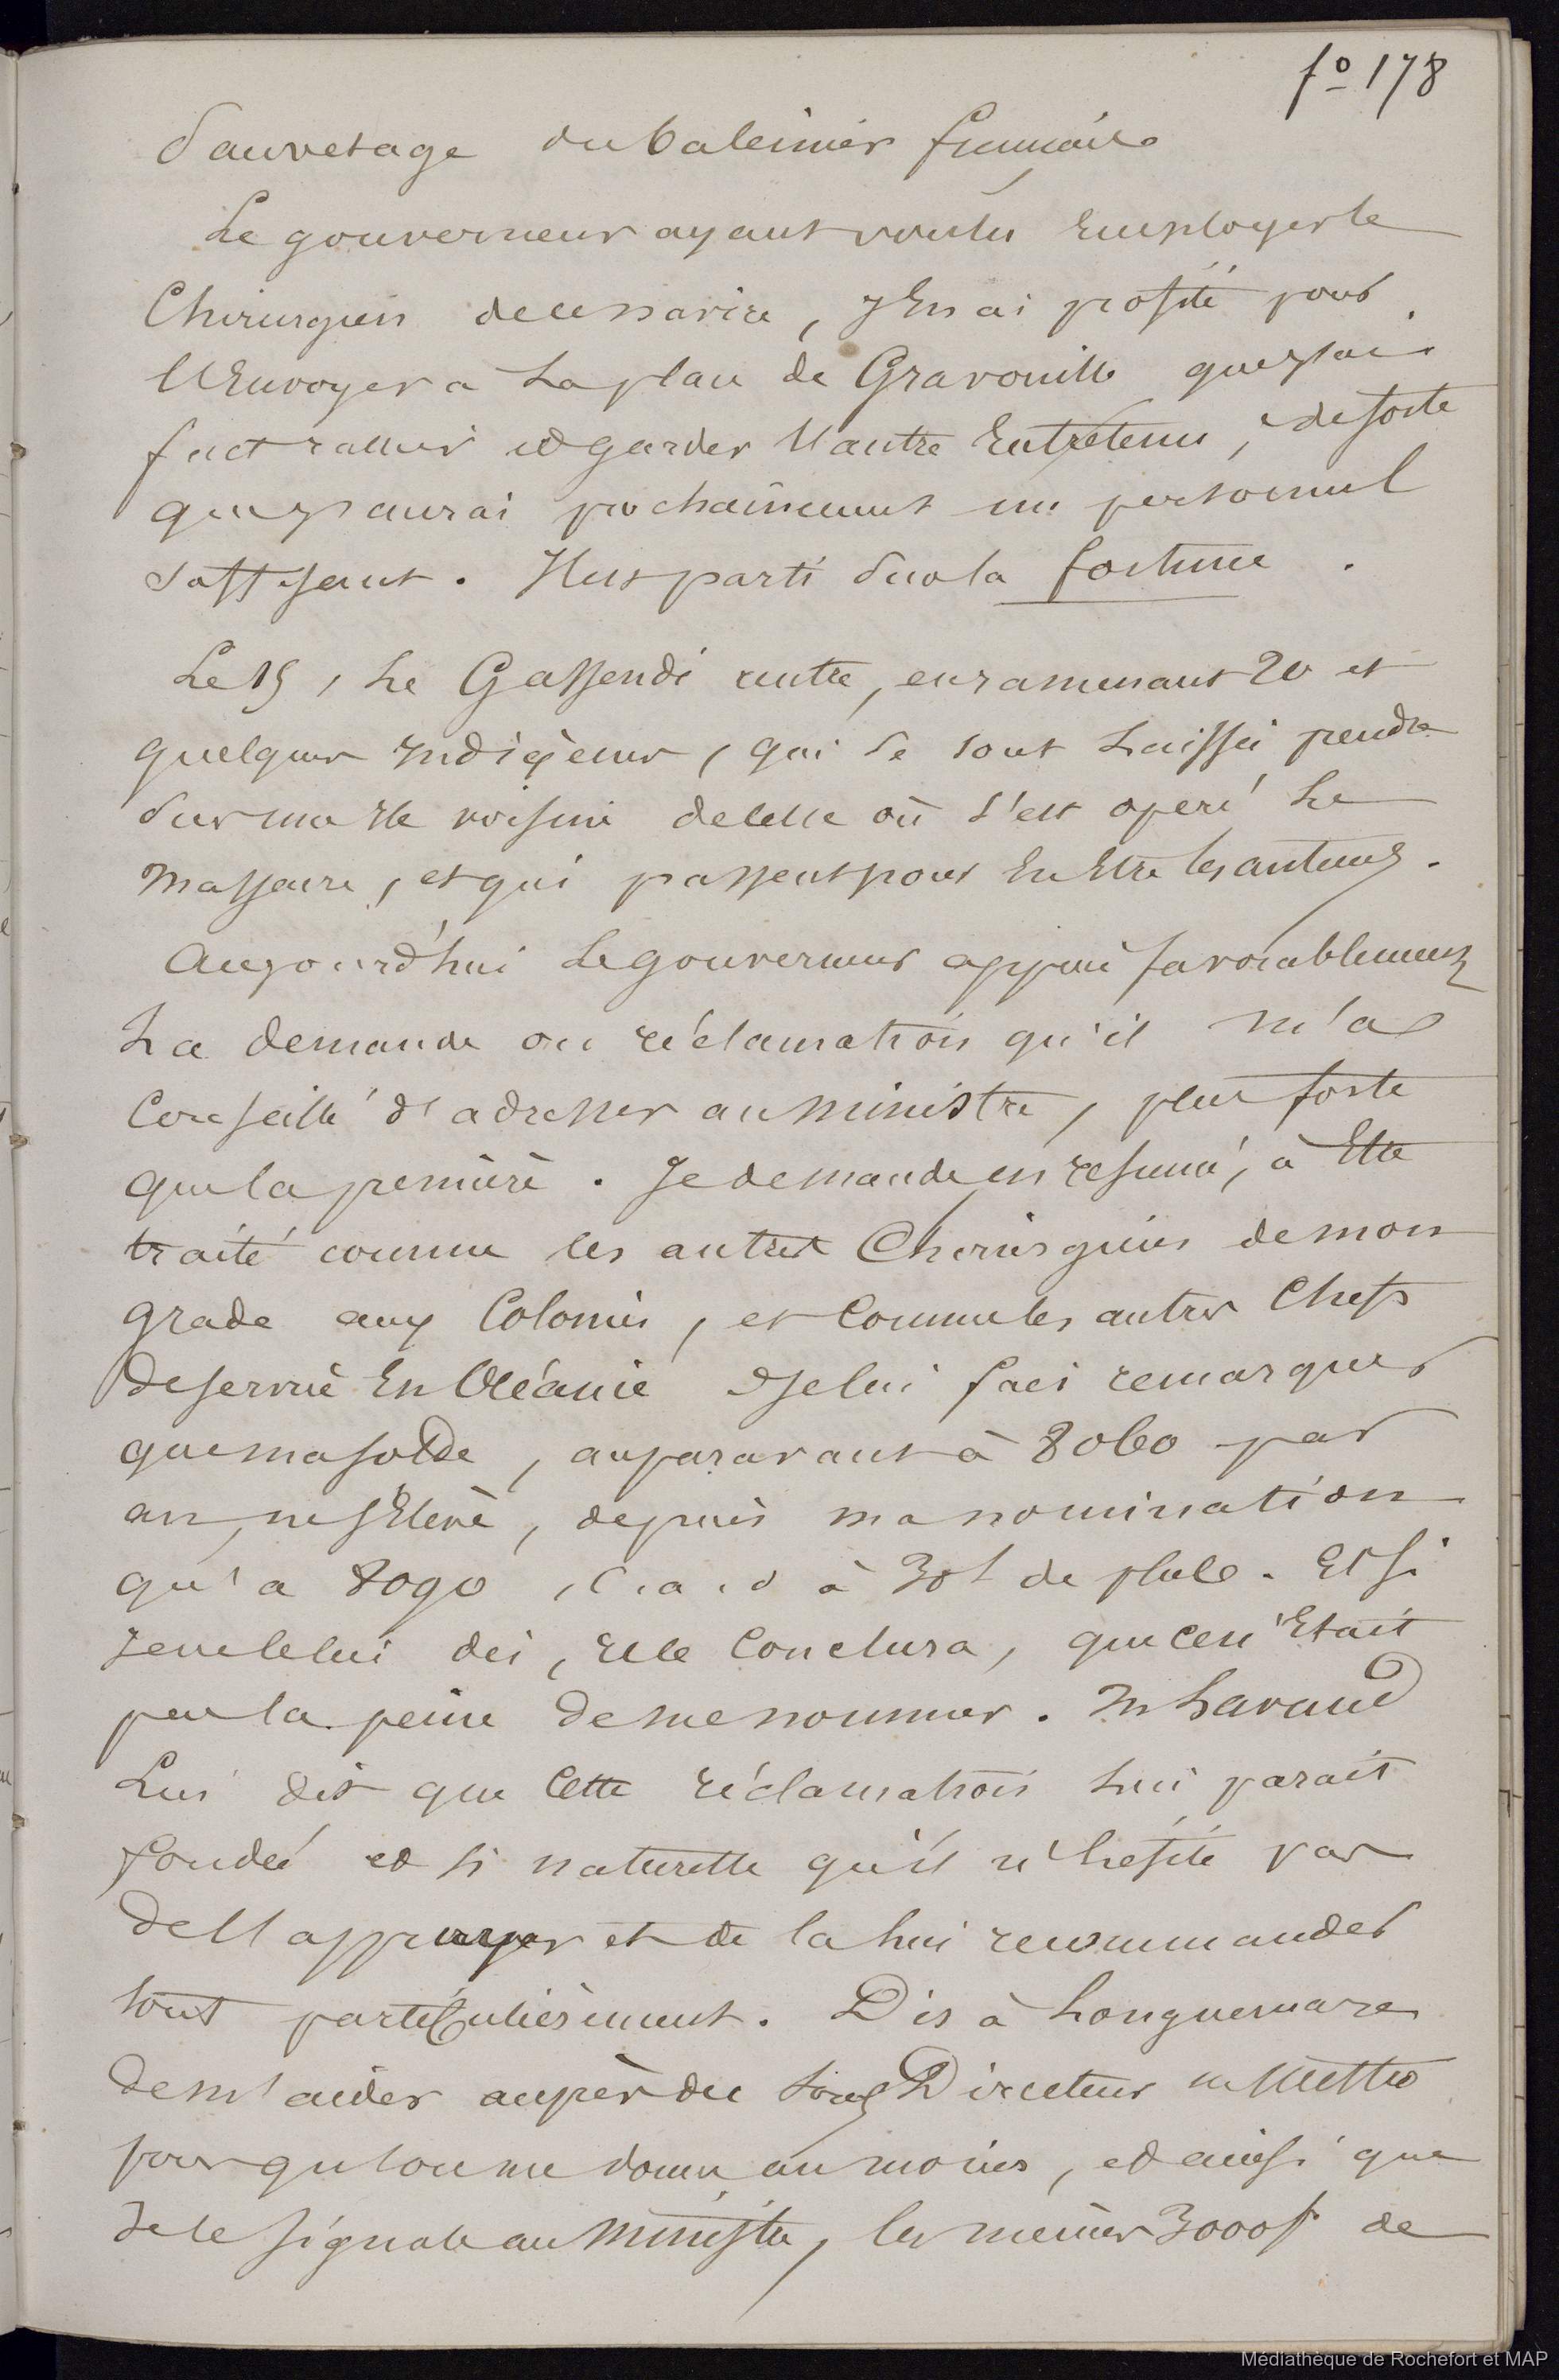 fo 178
Sauvetage du baleinier français
Le gouverneur ayant voulu Employer le
Chirurgien de ce navire, J'En ai profité pour
l'Envoyer a La place de Gravouille que j'ai
fait rallier et garder l'autre Entretenu, de sorte
que j'aurai prochainement un personnel
suffisant. Il est parti sur la fortune.
Le 19, Le Gassendi rentre, en ramenant 20 et
quelques Indigènes, qui se sont Laissé prendre
sur une Ile voisine de celle où s'est opéré Le
massacre, et qui passent pour En Etre les auteurs.
Aujourd'hui Le gouverneur appuie favorablement
La demande ou réclamation qu'il m'a
Conseillé d'adresser au Ministre, plus forte
que la première. Je demande en résumé, à Etre
traité comme les autres Chirurgiens de mon
grade aux Colonies, et Comme les autres Chefs
de service En Océanie Je lui fais remarquer
que ma solde, auparavant à 8060 par
an, ne s'Elève, depuis ma nomination
qu'a 8090, c.a.d à 30f de plus. Et si
Je ne le lui dis, Elle Conclura, que ce n'Etait
pas la peine de me nommer. M Lavaud
Lui dit que Cette réclamation Lui parait
fondée et si naturelle qu'il n'hésite pas
de l'appuyer et de la lui recommander
tout particulièrement. Dis à Longuemare
de m'aider auprès du Sous Directeur
pour qu'on me donne au moins, et ainsi que
Je le signale au Ministre, les mêmes 3000f de
Médiathèque de Rochefort et MAP